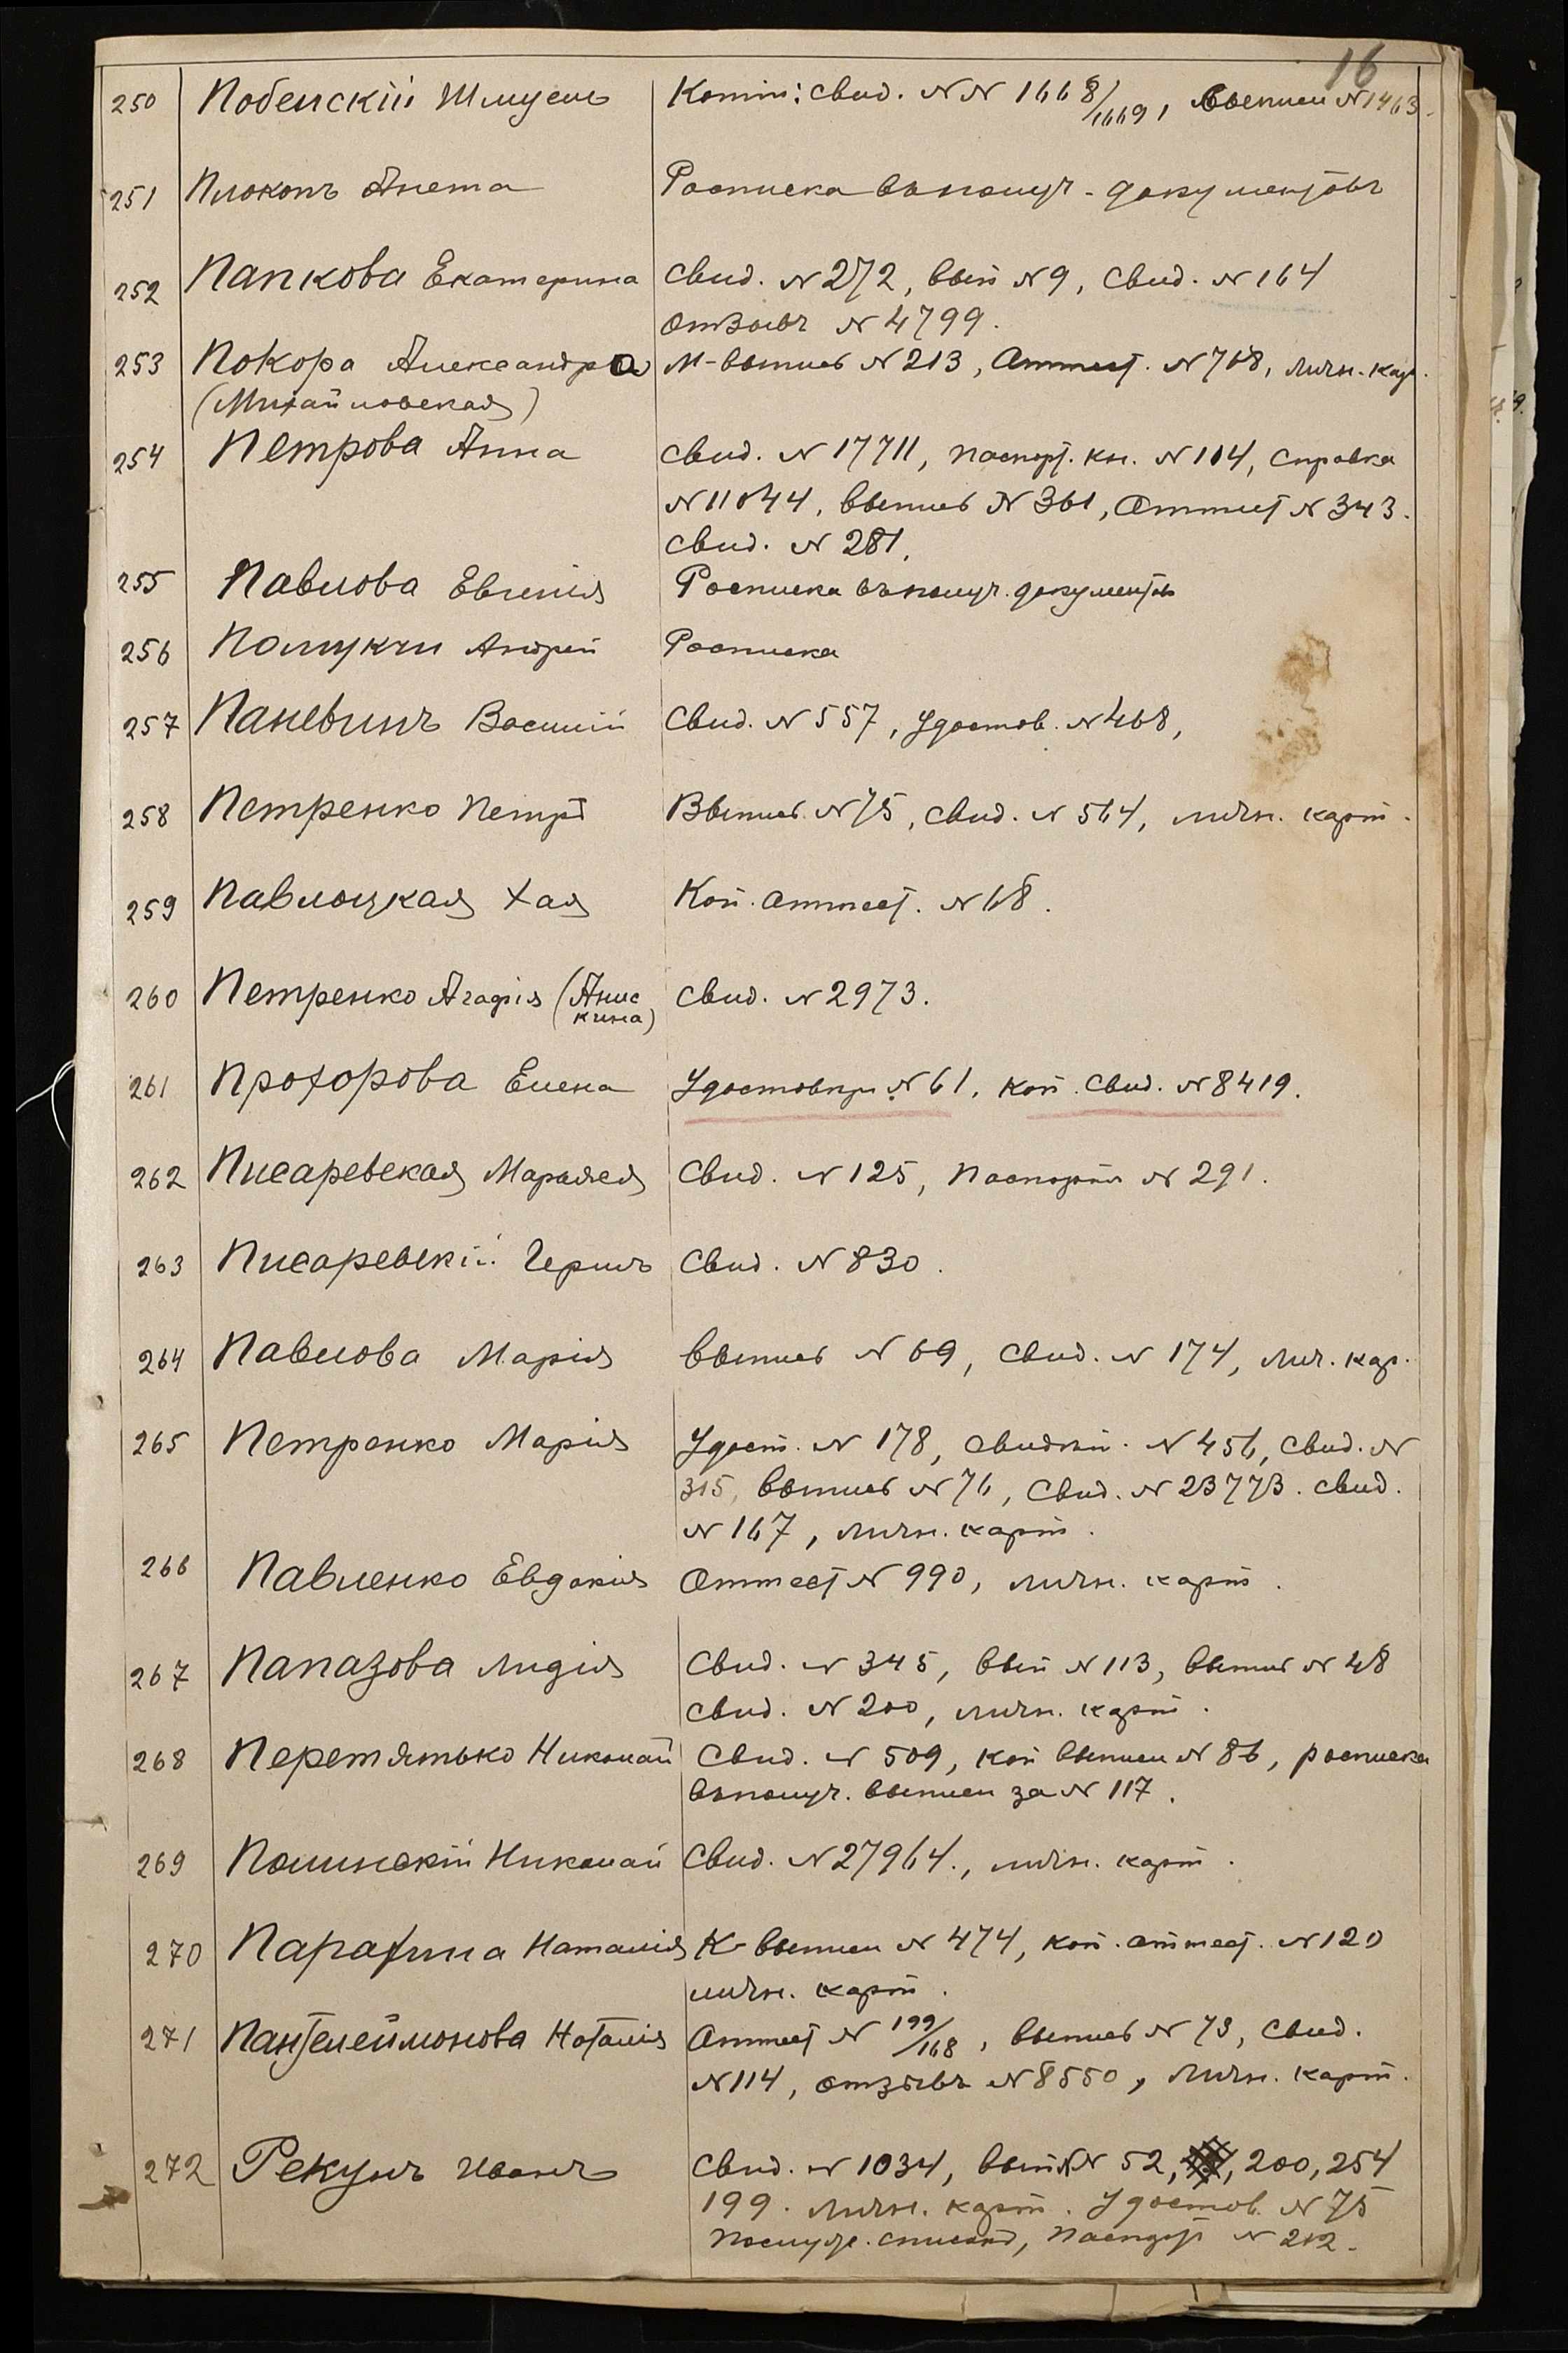 16
250 Побенскій Шмуель Копіи: свид. №№ 1668/1669, выписи №1463.
251 Плоконъ Анета Росписка въ получ. документовъ
252 Папкова Екатерина Свид. № 272, вып. № 9, Свид. № 164
Отзывъ № 4799.
253 Покора Александра М-выпись № 213, Аттест. № 768, личн. кар.
(Михайловская)
254 Петрова Анна Свид. № 17711, паспорт. кн. № 104, Справка
№ 11044, выпись № 361, Аттест № 343.
Свид. № 281.
255 Павлова Евгенія Росписка въ получ. документовъ
256 Полукчи Андрей Росписка
257 Паневинъ Василій Свид. № 557, Удостов. № 468,
258 Петренко Петръ Выпись № 75, Свид. № 564, личн. карт.
259 Павлоцкая Хая Коп. аттест. № 68.
260 Петренко Агафія (Анискина) Свид. № 2973.
261 Прохорова Елена Удостовѣр. № 61, коп. свид. № 8419.
262 Писаревская Марьяся Свид. № 125, Паспортъ № 291.
263 Писаревскій Гершъ Свид. № 830.
264 Павлова Марія Выпись № 69, Свид. № 174, лич. кар.
265 Петренко Марія Удост. № 178, свидѣт. № 456, Свид. №
315, выпись № 76, Свид. № 23773. свид.
№ 167, личн. карт.
266 Павленко Евдокія Аттест № 990, личн. карт.
267 Папазова Лидія Свид. № 345, вып № 113, выпись № 48
Свид. № 200, личн. карт.
268 Перетятько Николай Свид. № 509, коп выписи № 86, росписка
въ получ. выписи за № 117.
269 Полинскій Николай Свид. № 27964., личн. карт.
270 Парахина Наталія К-выписи № 474, коп. аттест. № 120
личн. карт.
271 Пантелеймонова Наталія Аттест № 199/168, выпись № 73, Свид.
№ 114, отзывъ № 8550, личн. карт.
272 Рекунъ Иванъ Свид. № 1034, вып №№ 52, 200, 254
199. личн. карт. Удостов. № 75
Послуж. списокъ, Паспорт № 212.